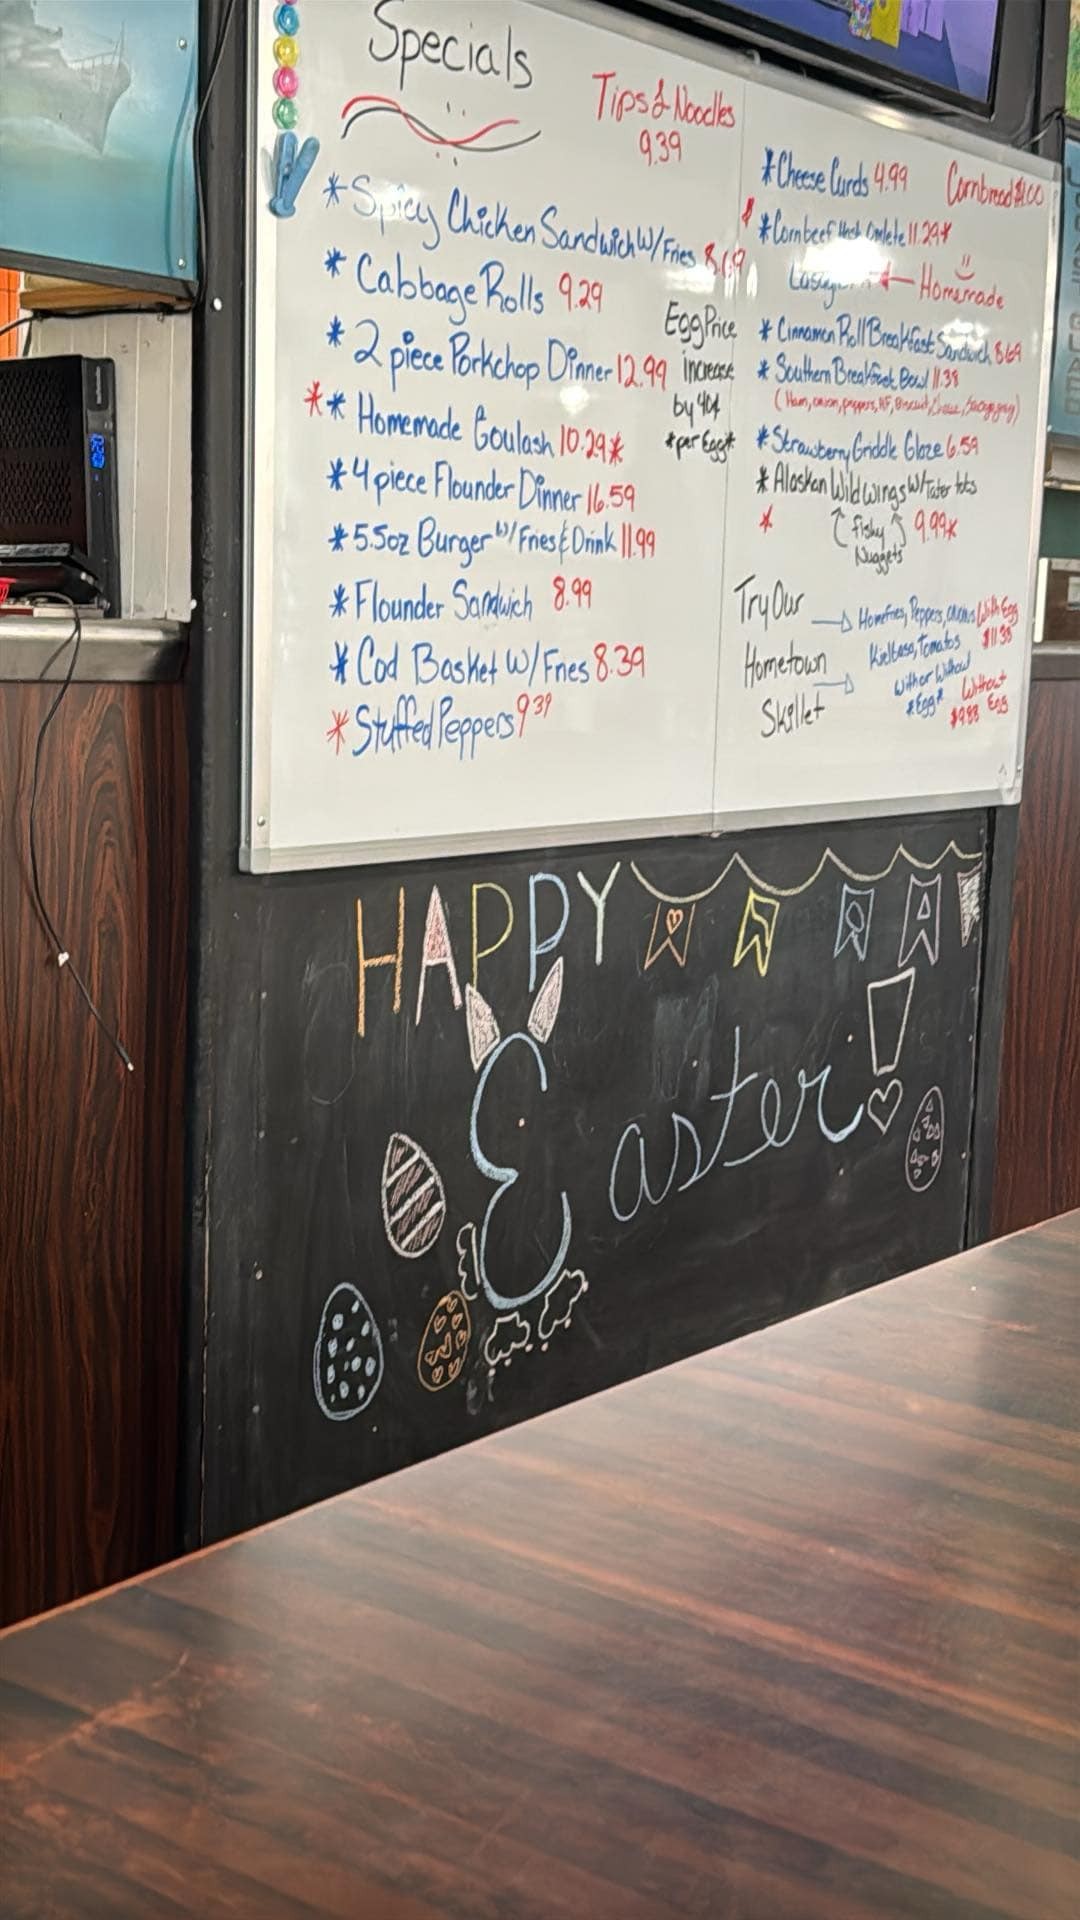 Specials
Tips & Noodles
9.39
* Spicy Chicken Sandwich W/Fries
* Cabbage Rolls 9.29
* 2 piece Porkchop Dinner 12.99
** Homemade Goulash 10.29*
* 4 piece Flounder Dinner 16.59
* 5.5oz Burger w/ Fries & Drink 11.99
* Flounder Sandwich 8.99
* Cod Basket W/Fries 8.39
* Stuffed Peppers 9.39
Egg Price
increase
by 40¢
*per Egg*
* Cheese Curds 4.99
Cornbread
* Cornbeef Hash Omlete 11.29*
Homemade
* Cinnamon Roll Breakfast Sandwich 8.69
* Southern Breakfast Bowl 11.38
(Ham, onion, peppers, HF, Biscuit,
* Strawberry Griddle Glaze 6.59
* Alaskan Wild wings W/Tater tots
* fishy 9.99*
Nuggets
Try Our
Hometown
Skillet
Homefries, Peppers, onions
Kielbasa, Tomatos
With or Without
*Egg*
With Egg
$11.38
Without
$9.88 Egg
HAPPY
Easter!